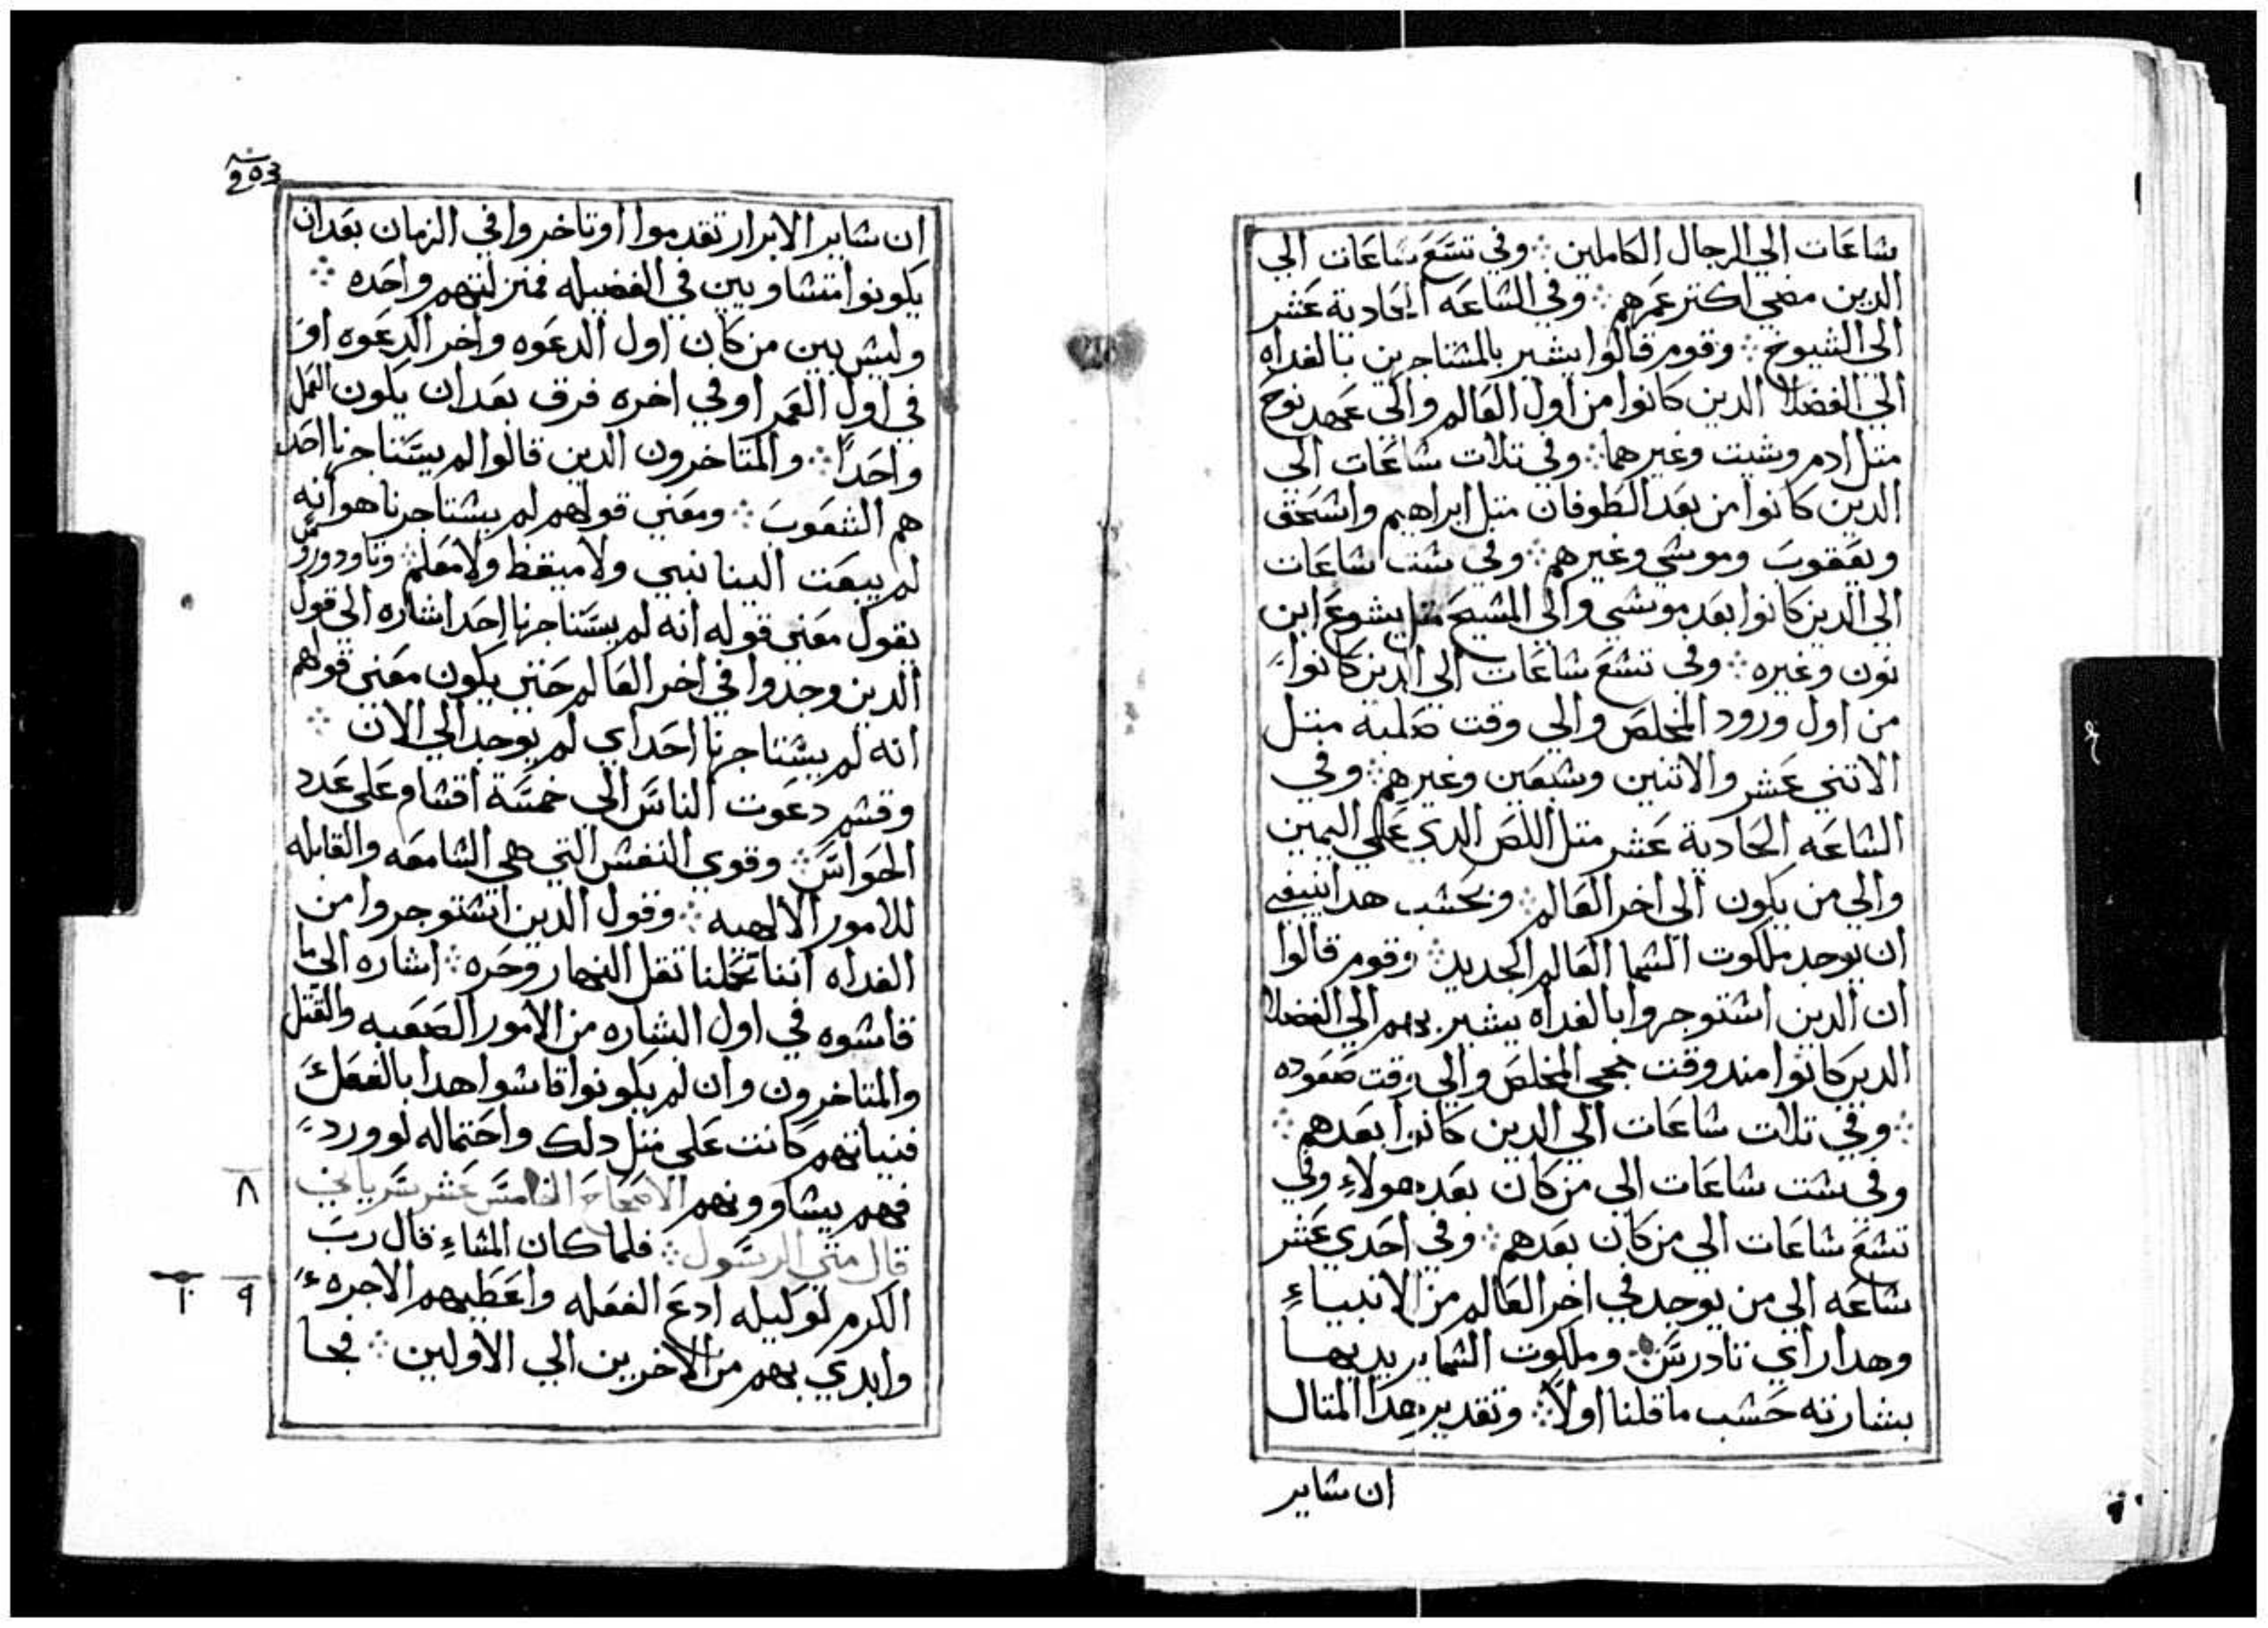 شاعات الي الرجال الكاملين ⁘ وفي تسَع شاعَات الي
الدين مضي اكتر عمَرهم ⁘ وفي الشاعَه الحادية عَشر
الي الشيوخ ⁘ وقوم قالوا يشير بالمشتاجرين بالغداه
الي الفضلا الدين كانوا من اول العَالم والي عَهد نوح
متل ادم وشيت وغيرهما ⁘ وفي تلات شاعَات الي
الدين كانوا من بعَد الطوفان متل ابراهيم واشحَق
ويعَقوبَ وموشي وغيرهم ⁘ وفي شت شاعَات
الي الدين كانوا بعَد موشي والي المشيحَ متل يشوعَ ابن
نون وغيره ⁘ وفي تشعَ شاعَات الي الدين كانوا
من اول ورود المخلصَ والي وقت صَلبه متل
الاتني عَشر والاتنين وشبعَين وغيرهم ⁘ وفي
الشاعَه الحَادية عَشر متل اللصَ الدي عَلي اليمين
والي من يكون الي اخر العَالم ⁘ وبحَشب هدا ينبغي
ان يوجد ملكوت الشما العَالم الجديد ⁘ وقوم قالوا
ان الدين اشتوجروا بالغداه يشير بهم الي الفضلا
الدين كانوا مند وقت مجي المخلصَ والي وقت صَعَوده
⁘ وفي تلات شاعَات الي الدين كانوا بعَدهم ⁘
وفي شت شاعَات الي من كان بعَد هولاءِ وفي
تشعَ شاعَات الي من كان بعَدهم ⁘ وفي احَدي عَشر
شاعَه الي من يوجد في اخر العَالم من الانبياءِ
وهدا راي تادرسَ ⁘ وملكوت الشما يريد بها
بشارته حَشب ما قلنا اولاً ⁘ وتقدير هدا المتال
ان شاير
ان شاير الابرار تقدموا اوتاخروا في الزمان بعَدان
يكونوا متشاويين في الفضيله فمنزلتهم واحَده ⁘
وليش بين من كان اول الدعَوه واخر الدعَوه او
في اول العَمر اوفي اخره فرق بعَدان يكون العَمل
واحَداً ⁘ والمتاخرون الدين قالوا لم يسَتاجرنا احَد
هم الشعَوبَ ⁘ ومعَني قولهم لم يشتاجرنا هوانه
لم يبعَت الينا نبي ولا ميقظ ولا معَلم ⁘ وتاودورسَ
يقول معَني قوله انه لم يسَتاجرنا احَد اشاره الي قول
الدين وجدوا في اخر العَالم حَتي يكون معَني قولهم
انه لم يشتاجرنا احَد اي لم يوجد الي الان ⁘
وقشم دعَوت الناسَ الي خمسَة اقشام عَلي عَدد
الحَواسَ ⁘ وقوي النفش التي هي الشامعَه والقابله
للامور الالهيه ⁘ وقول الدين اشتوجروا من
الغداه اننا تحَملنا تقل النهار وحَره ⁘ اشاره الي ما
قاشوه في اول البشاره من الامور الصَعَبه والقتل
والمتاخرون وان لم يكونوا قاشوا هدا بالفعَل
فنياتهم كانت عَلي متل دلك واحَتماله لوورد
فهم يشاوونهم الاصَحَاحَ الخامسَ عَشر سَرياني
قال متي الرسَول ⁘ فلما كان المشاءِ قال ربَ
الكرم لوكيله ادعَ الفعَله واعَطيهم الاجره
وابدي بهم من الاخرين الي الاولين ⁘ فجا
٨
٩